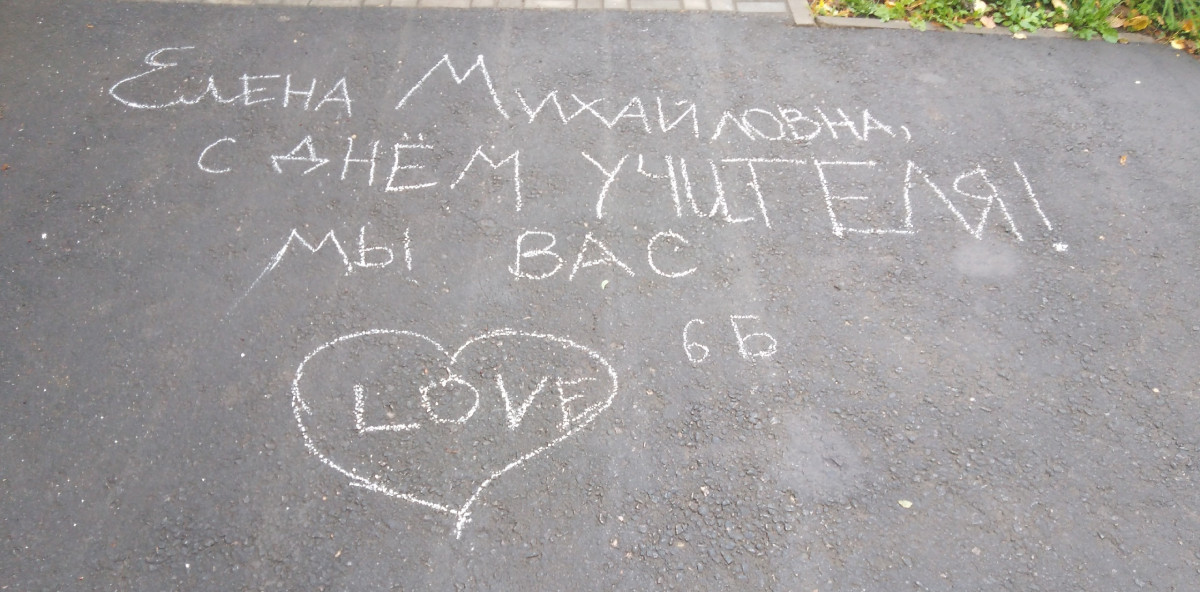 Елена Михайловна,
с днём учителя!
мы вас
6 Б
LOVE